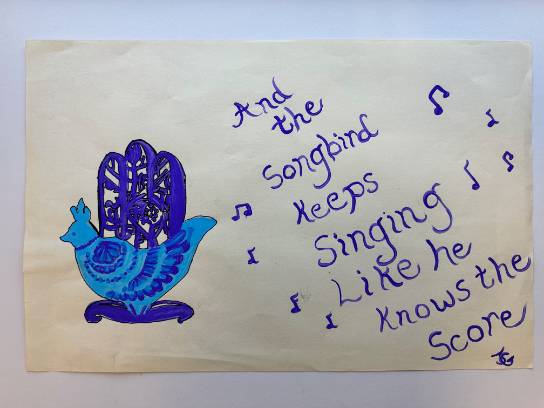 And
the
Songbird
Keeps
Singing
Like he
Knows the
Score